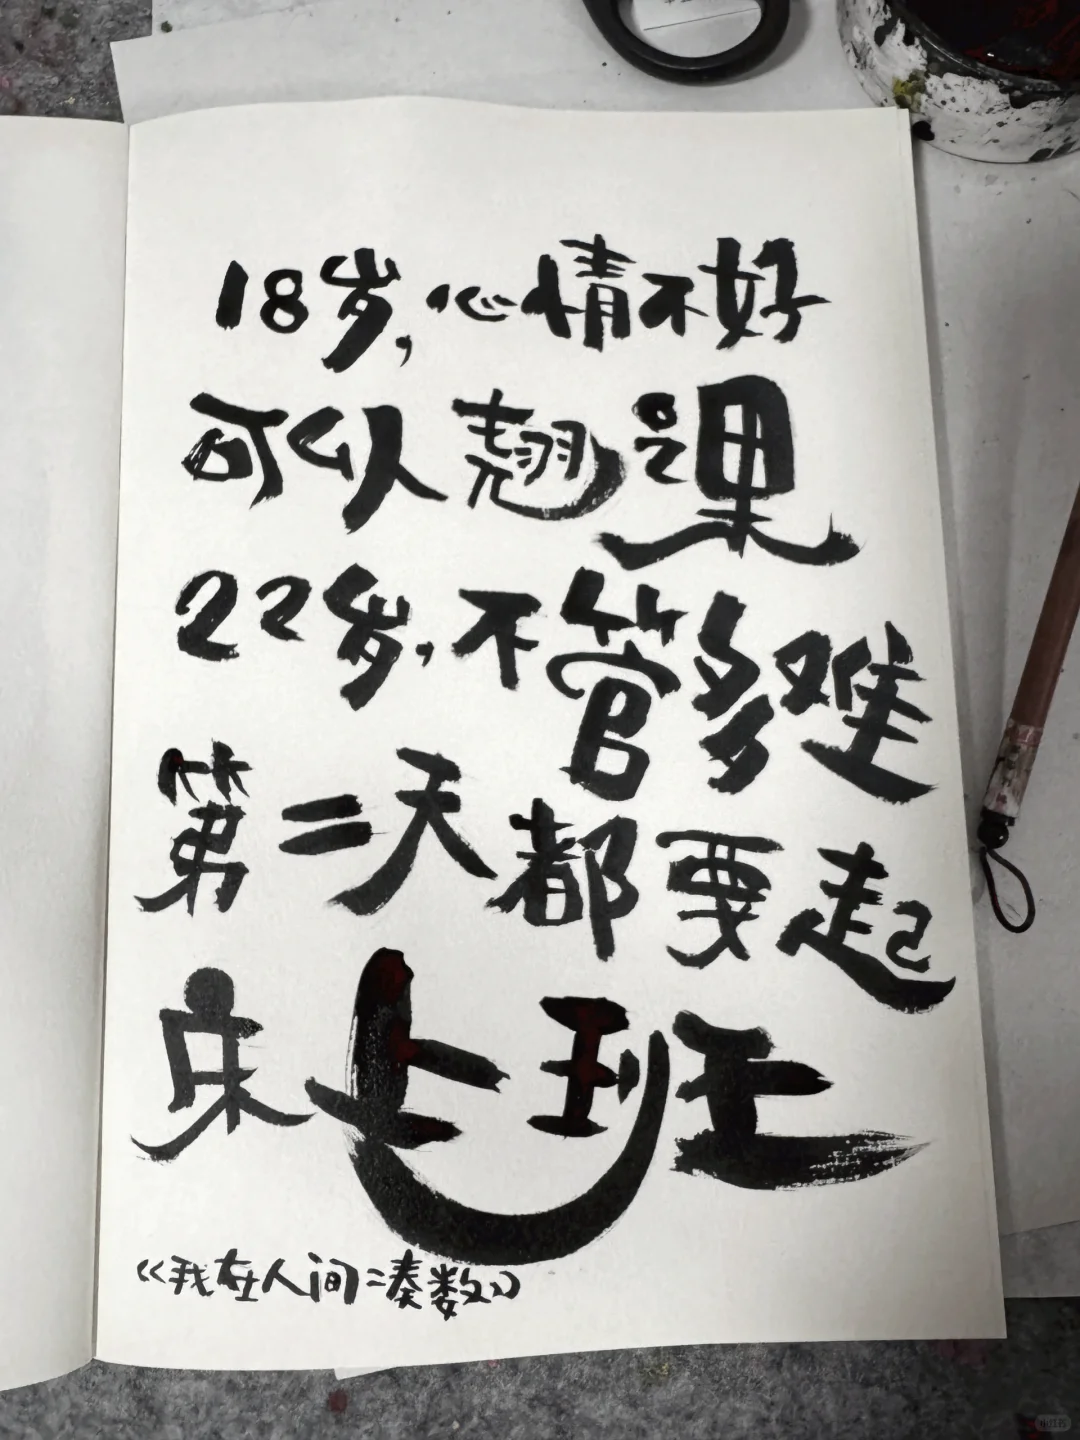 18岁,心情不好
可以翘课
22岁,不管多难
第二天都要起
床上班
《我在人间凑数》
小红书